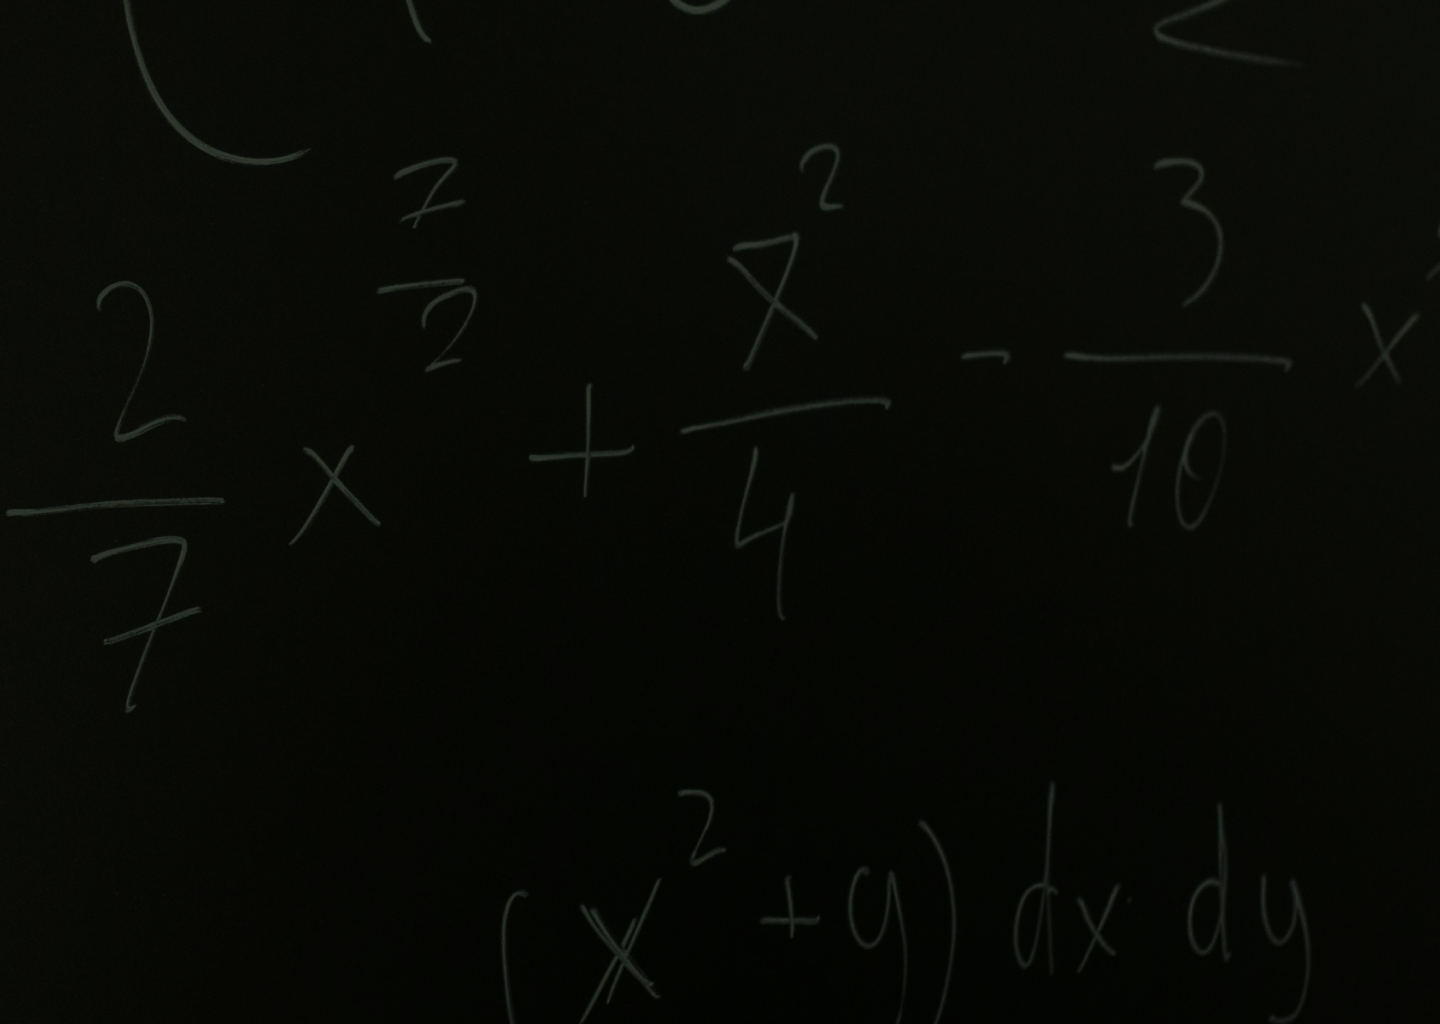 2/7 x^(7/2) + x^2/4 - 3/10 x
(x^2 + y) dx dy